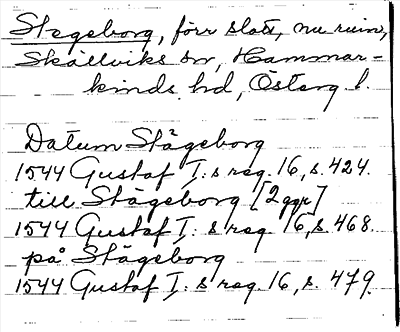 Stegeborg, förr slott, nu ruin,
Skällviks sn, Hammar-
kinds hd, Österg. l.
Datum Stägeborg
1544 Gustaf I:s reg. 16, s. 424.
till Stägeborg [2 ggr]
1544 Gustaf I:s reg. 16, s. 468.
på Stägeborg
1544 Gustaf I:s reg. 16, s. 479.